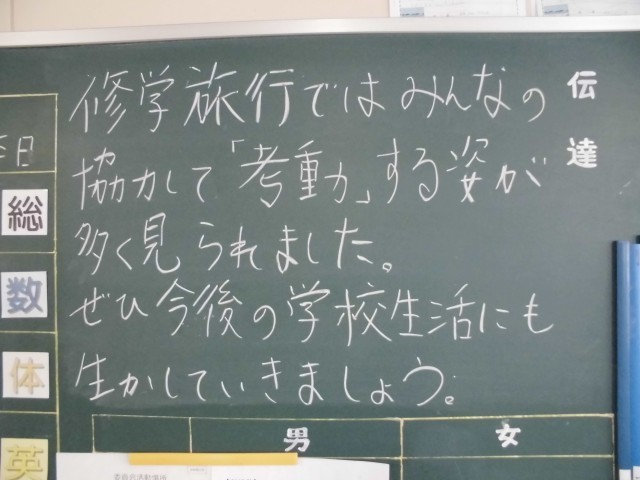 伝達
修学旅行ではみんなの
協力して「考動力」する姿が
多く見られました。
ぜひ今後の学校生活にも
生かしていきましょう。
日
総
数
体
英
男
女